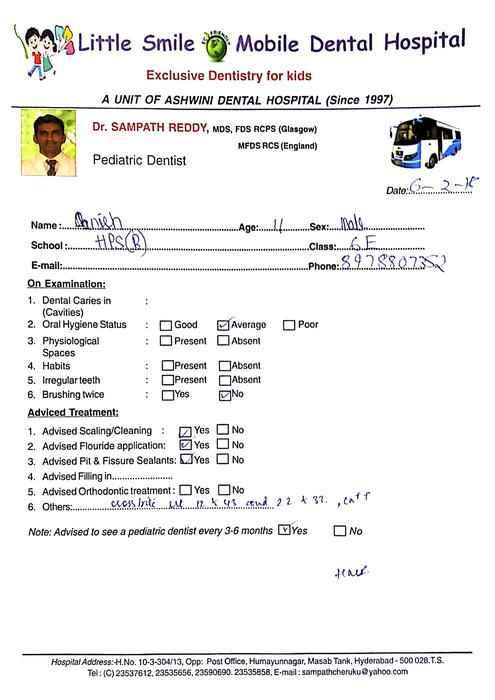 Little Smile Mobile Dental Hospital
Exclusive Dentistry for kids
A UNIT OF ASHWINI DENTAL HOSPITAL (Since 1997)
Dr. SAMPATH REDDY, MDS, FDS RCPS (Glasgow)
MFDS RCS (England)
Pediatric Dentist
Date: 6-2-18
Name: Age: 11 Sex: Male
School: HPS(R) Class: 6 E
E-mail: Phone: 8978807352
On Examination:
1. Dental Caries in :
(Cavities)
2. Oral Hygiene Status : Good Average Poor
3. Physiological : Present Absent
Spaces
4. Habits : Present Absent
5. Irregular teeth : Present Absent
6. Brushing twice : Yes No
Adviced Treatment:
1. Advised Scaling/Cleaning : Yes No
2. Advised Flouride application: Yes No
3. Advised Pit & Fissure Sealants: Yes No
4. Advised Filling in
5. Advised Orthodontic treatment : Yes No
6. Others: crossbite 12 & 43 and 22 & 33.
Note: Advised to see a pediatric dentist every 3-6 months Yes No
Hospital Address:-H.No. 10-3-304/13, Opp: Post Office, Humayunnagar, Masab Tank, Hyderabad - 500 028.T.S.
Tel : (C) 23537612, 23535656, 23590690. 23535858, E-mail : sampathcheruku@yahoo.com